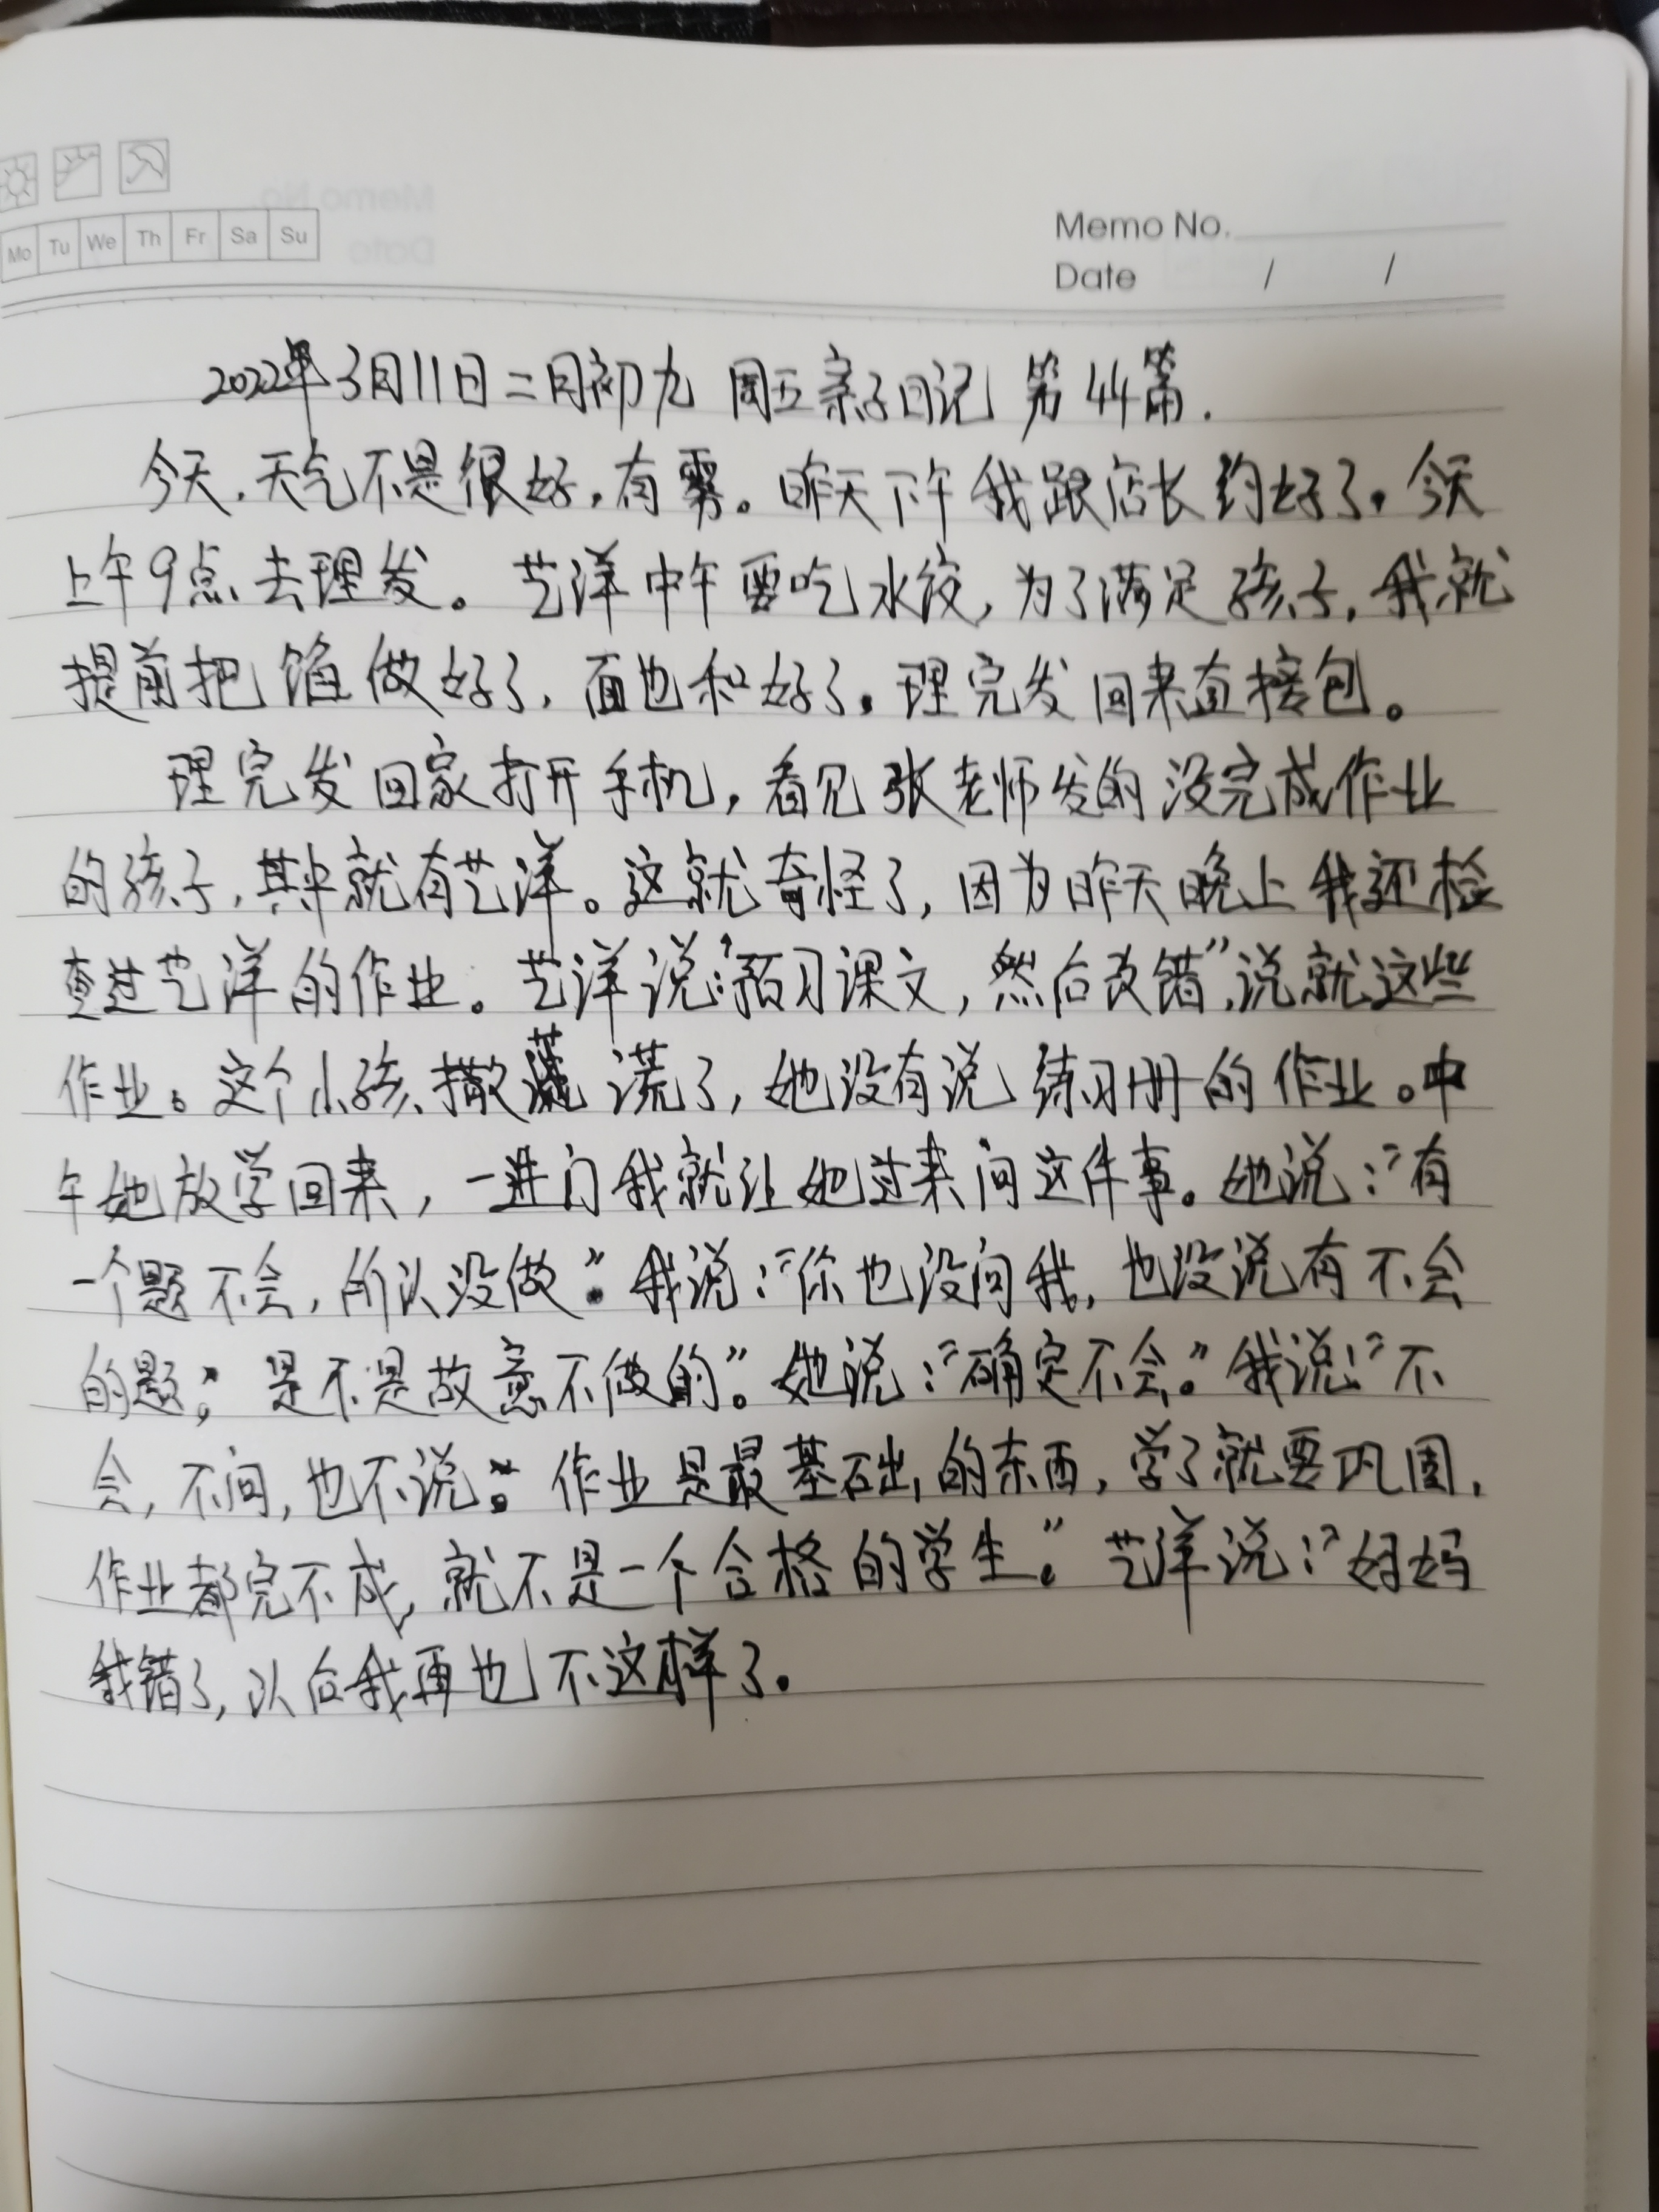 Memo No.
Mo Tu We Th Fr Sa Su
Date / /
2022年3月11日二月初九 周五亲子日记 第44篇.
今天,天气不是很好,有雾。昨天下午我跟店长约好了,今天
上午9点去理发。艺洋中午要吃水饺,为了满足孩子,我就
提前把馅做好了,面也和好了,理完发回来直接包。
理完发回家打开手机,看见张老师发的没完成作业
的孩子,其中就有艺洋。这就奇怪了,因为昨天晚上我还检
查过艺洋的作业。艺洋说:“预习课文,然后改错”,说就这些
作业。这个小孩撒谎了,她没有说练习册的作业。中
午她放学回来,一进门我就让她过来问这件事。她说:“有
一个题不会,所以没做”。我说:“你也没问我,也没说有不会
的题;是不是故意不做的”。她说:“确定不会。”我说:“不
会,不问,也不说。作业是最基础的东西,学了就要巩固,
作业都完不成,就不是一个合格的学生。”艺洋说:“妈妈
我错了,以后我再也不这样了。